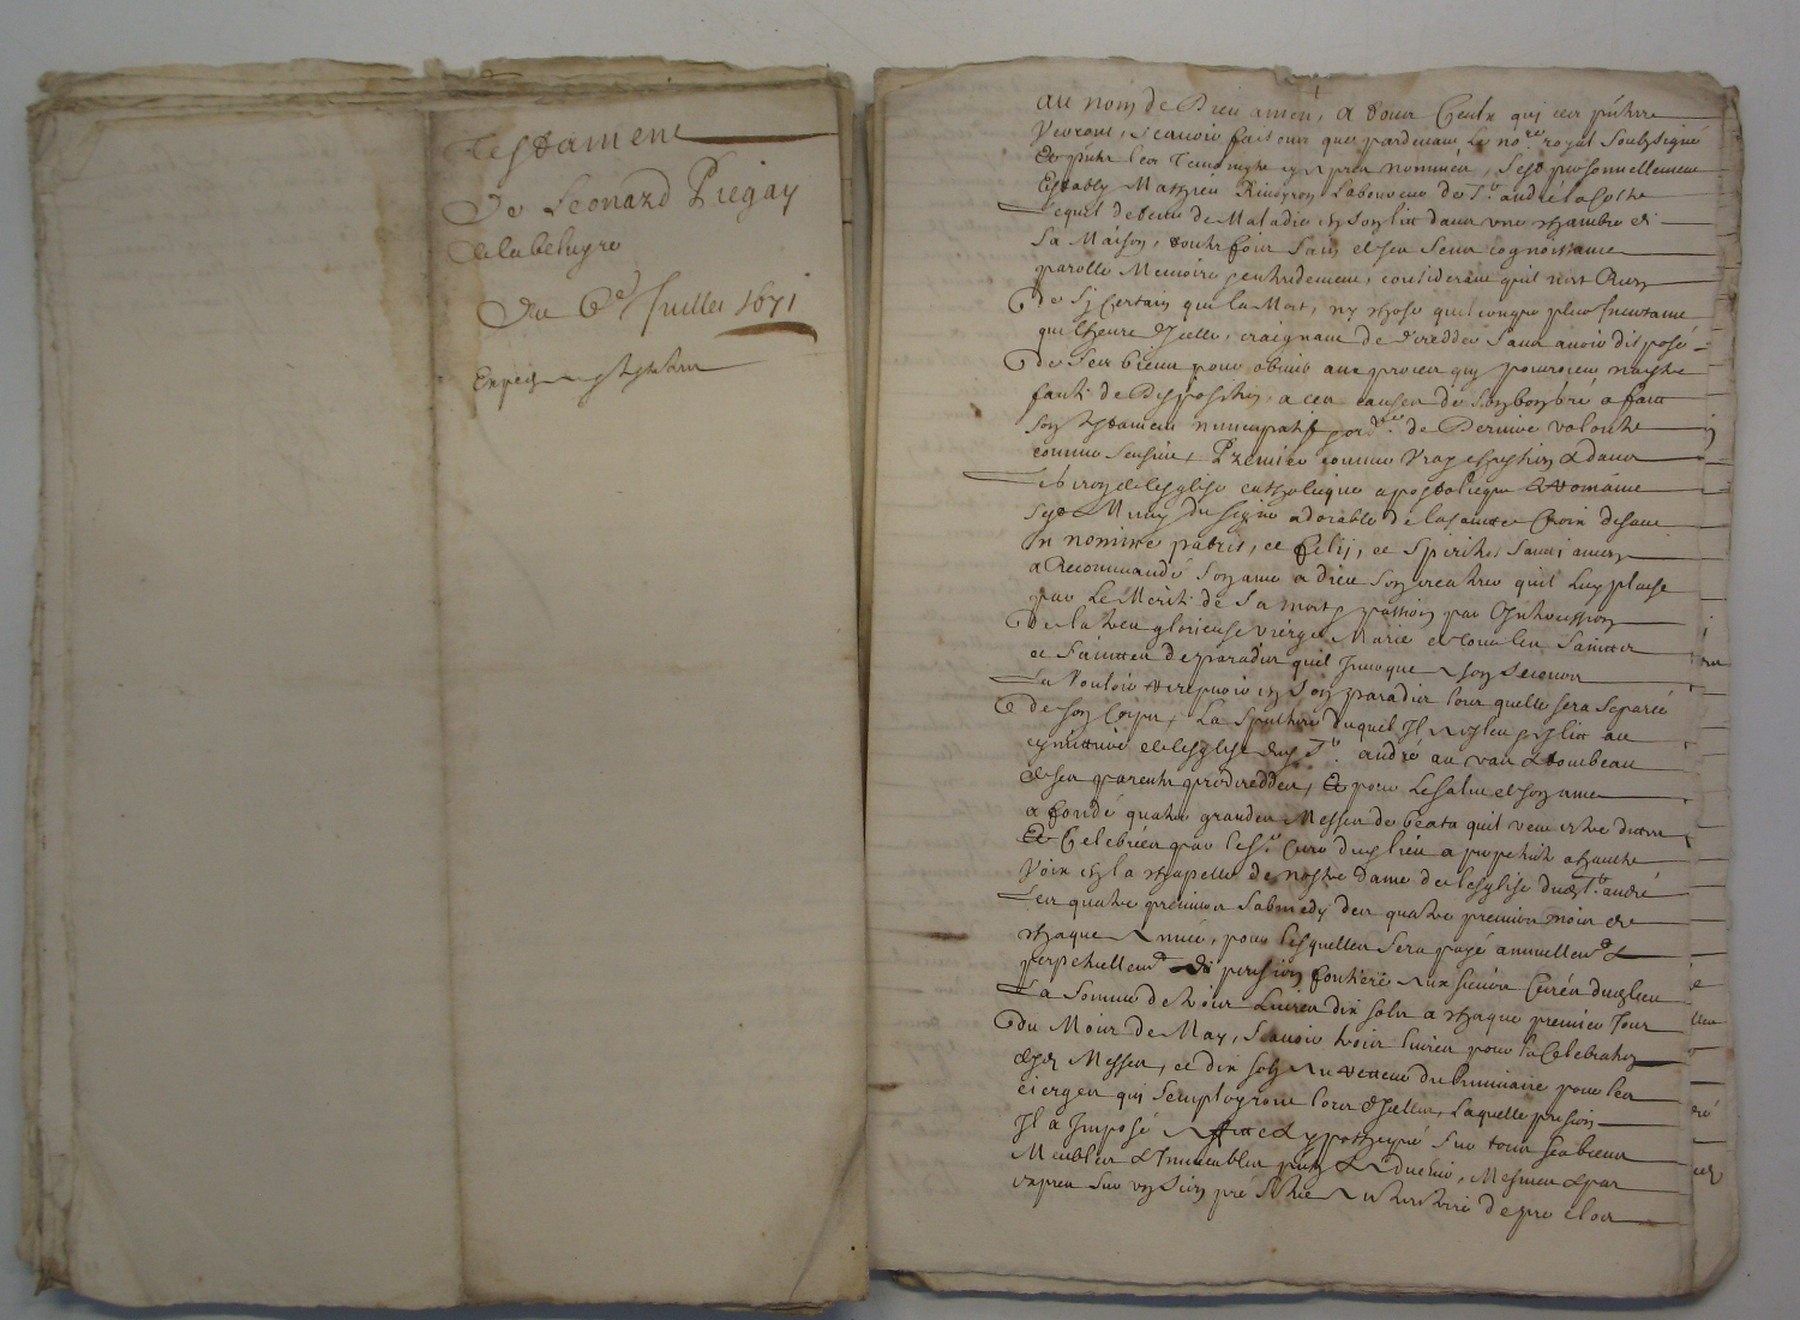 Testament
De Leonard Piegay
de la beluyre
Du 6e Juillet 1671
Au nom de Dieu amen, a tous Ceulx qui ces pntes
Verront, scavoir faisons que pardevant le nore royal soubzsigné
Et pntz les temoingtz apres nommés, s'est personnellement
Estably Mathieu laboureur de St andré la coste
lequel detenu de Maladie en son lict dans une chambre de
sa Maison, touteffois sain de ses sens cognoissance
parolle Memoire entendement, considerant quil n'est Rien
de sy Certain que la Mort, ny chose quelconque plus Incertaine
que lheure d'Icelle, craignant de decedder sans avoir disposé
de ses biens pour obvier aux proces quy pourroient naystre
faute de Disposition, a ces causes de son bon gré a faict
son testament nuncupatif de Derniere volonté
comme sensuit, Premier comme vray chrestien & dans
le giron de lesglise catholique apostolique & romaine
s'est Muny du signe adorable de la saincte Croix disant
In nomine patris, et filij, et spiritus sancti amen
a Recommandé son ame a dieu son createur quil luy plaise
par Le Merite de sa mort passion par Intercession
de la tres glorieuse vierge Marie et tous les saincts
et sainctes de paradis quil Invoque a son secours
la vouloir recepvoir en son paradis lors quelle sera separée
de son corps, La sepulture duquel Il a esleu au
cymittiere de lesglise dud St andré au vas & tombeau
de ses parents predeceddés, Et pour le salut de son ame
a fondé quatre grandes Messes de beata quil veut estre dittes
Et Celebrées par le sr Curé dud lieu a perpetuité a haulte
Voix en la chapelle de nostre dame de lesglise dud St andré
les quatre premiers sabmedy des quatre premiers mois de
chaque Année, pour lesquelles sera payé annuellemt &
perpetuellemt de pension fontiere aux sieurs Curés dud lieu
la somme de trois Livres dix solz a chaque premier Jour
du Mois de May, scavoir trois livres pour la Celebration
desd Messes, et dix solz du luminaire pour les
cierges qui s'employront lors d'Icelles, laquelle pension
Il a Imposé & ypothequé sur tous ses biens
Meubles & Immeubles pntz & advenir, Mesmes & par
expres sur un sien pré de pre clos